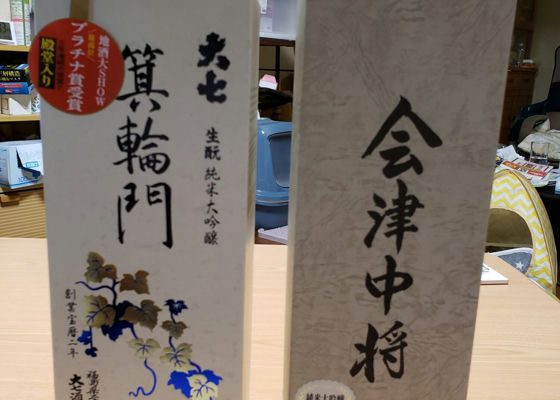 地酒大SHOW
プラチナ賞受賞
殿堂入り
大七
箕輪門
生酛 純米大吟醸
創業宝暦二年
福島県
大七酒
会津中将
純米大吟醸